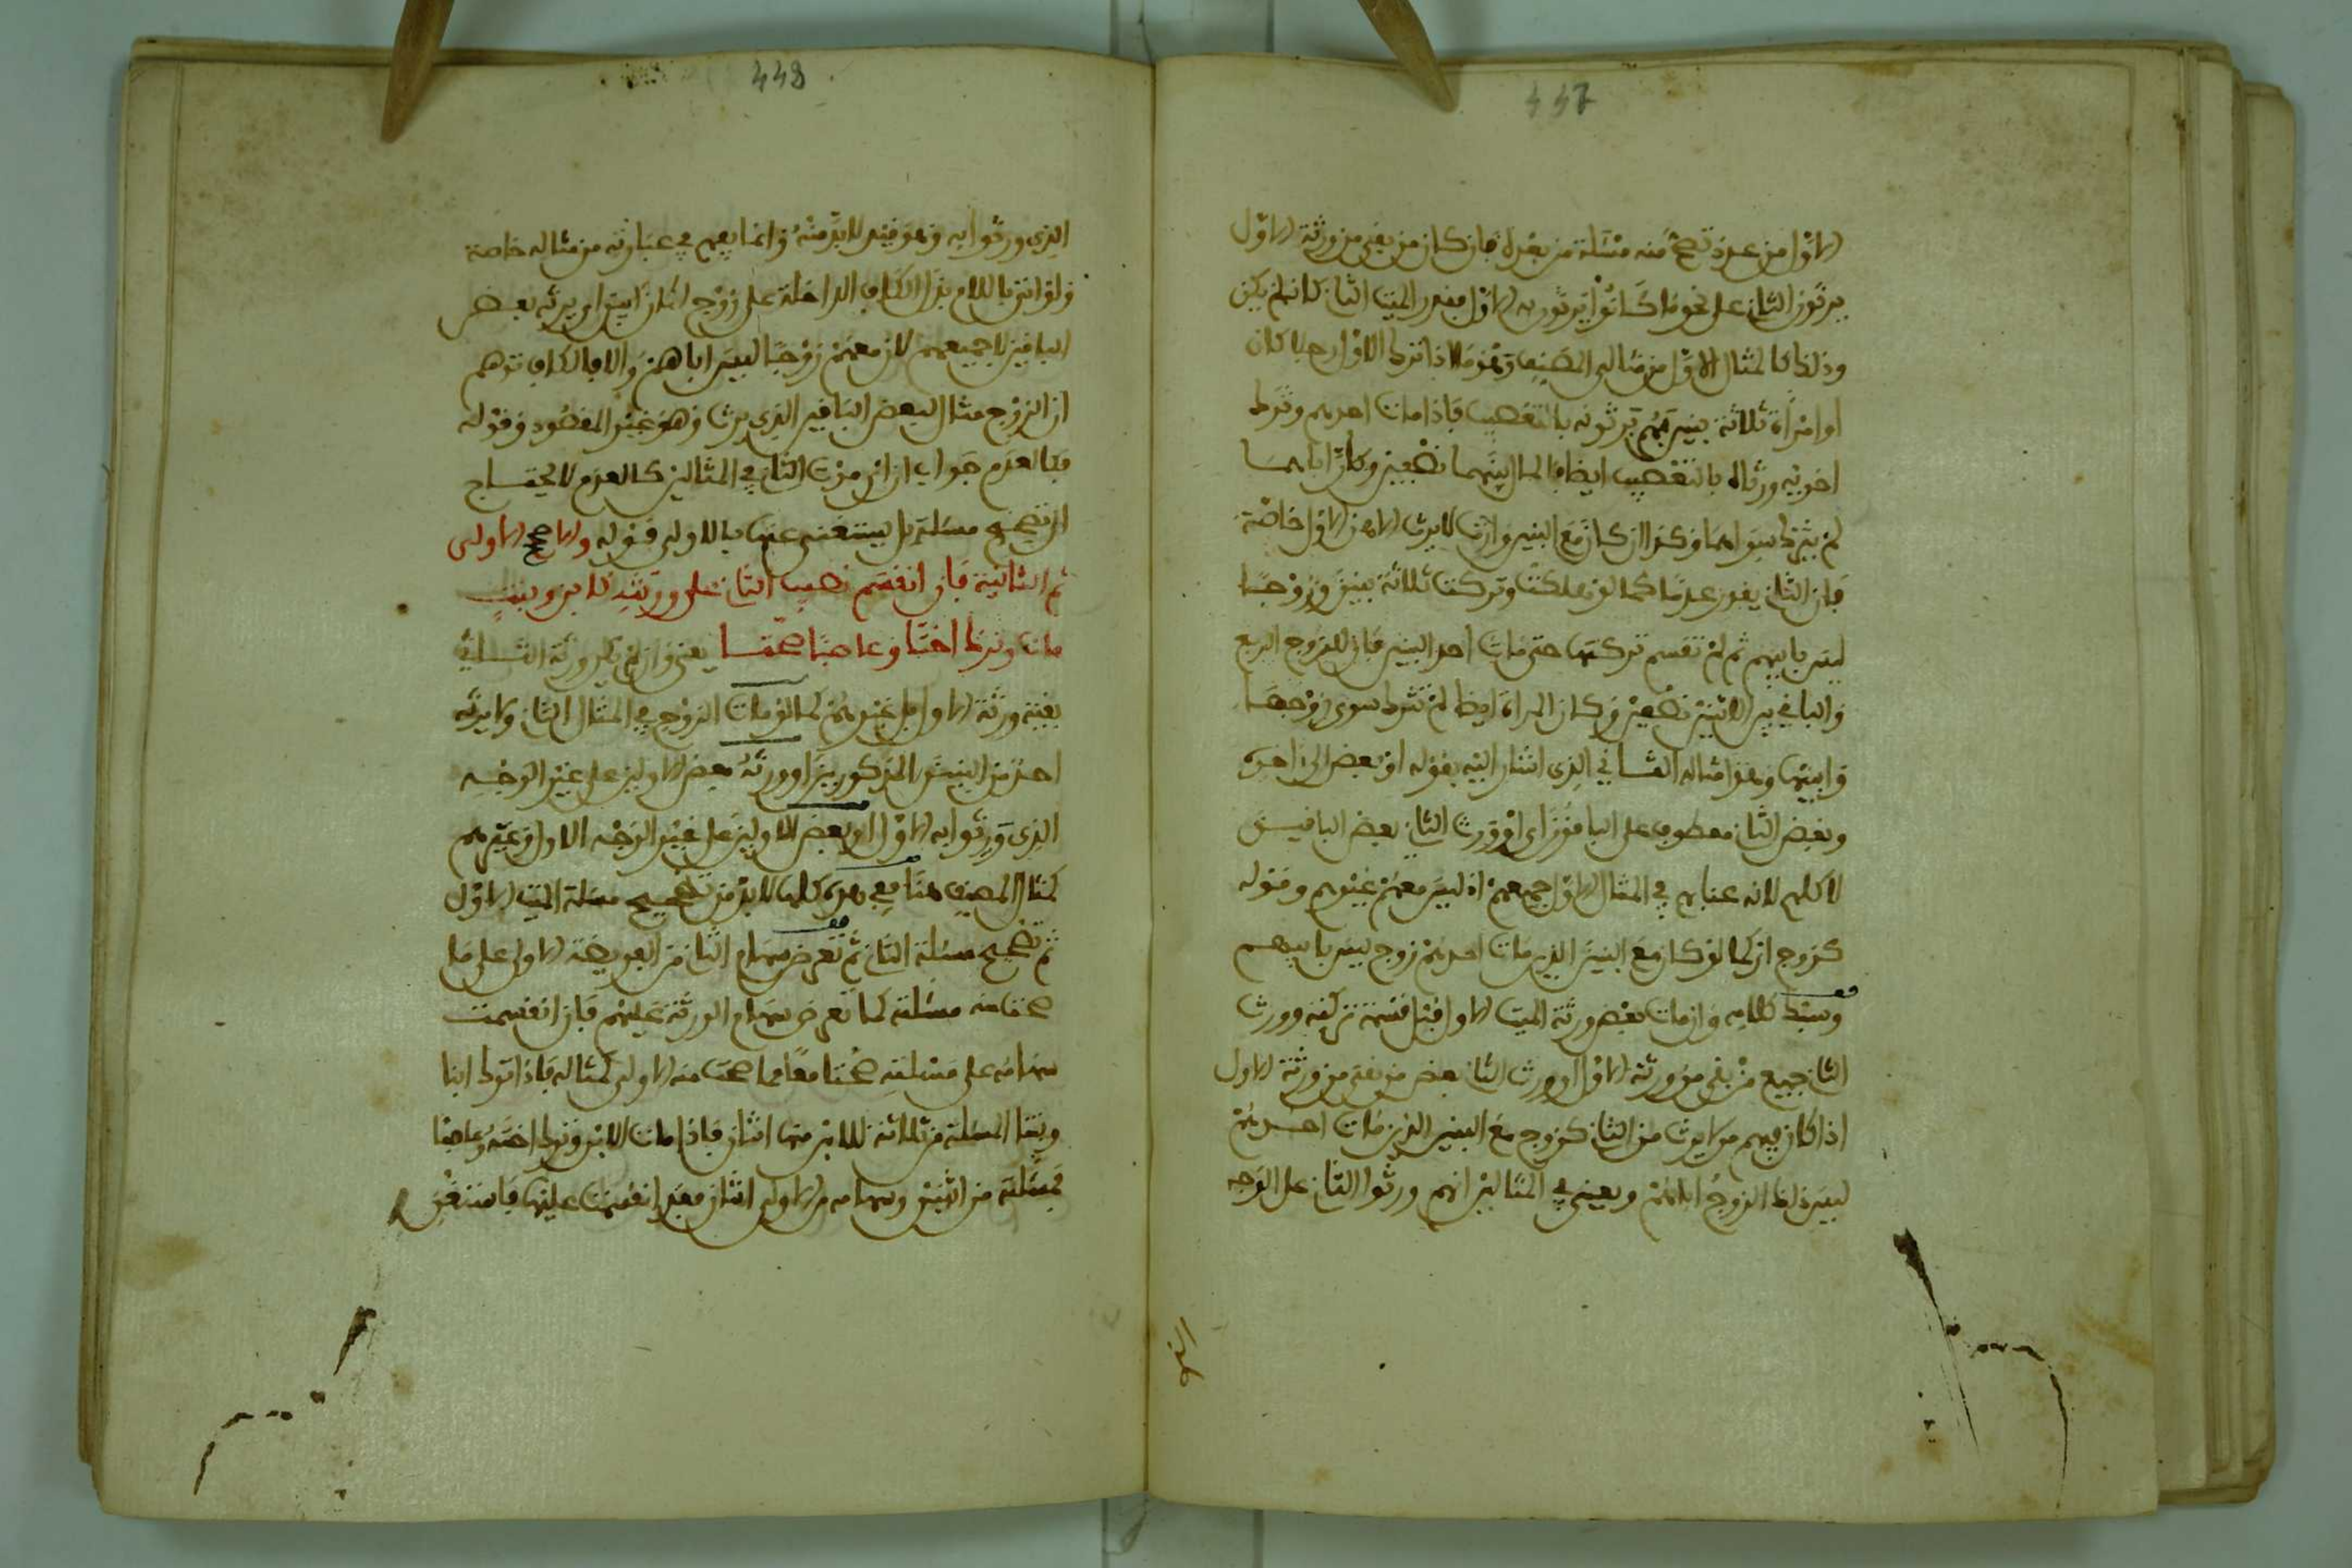 447
الاول من عدد تصح منه مسئلة من بعده فان كان من بقي من ورثة الاول
يرثون الثاني على نحو ما كانوا يرثون به الاول فيقدر الميت الثاني كانه لم يكن
وذلك كالمثال الاول من مثالي المصنف وهو ما اذا ترك الاول رجلا كان
او امراة ثلاثة بنين هم يرثونه بالتعصيب فاذا مات احدهم وترك
اخويه ورثاه بالتعصيب ايضا فالمال بينهما نصفين وكان اباهما
لم يترك سواهما وكذا ان كان مع البنين وارث لا يرث الا من الاول خاصة
فان الثاني يقدر عدما كما لو هلكت وتركت ثلاثة بنين وزوجا
ليس بابيهم ثم لم تقسم تركتها حتى مات احد البنين فان للزوج الربع
والباقي بين الابنين نصفين وكان المراة ايضا لم تترك سوى زوجها
وابنيها وهو مثاله الثاني الذي اشار اليه بقوله او بعض الى اخره
وبعض الثاني معطوف على الباقون اي او ورث الثاني بعض الباقين
لا كلهم لانه عنا بهم في المثال الاول جميعهم اذ ليس معهم غيرهم وقوله
كزوج اي كما لو كان مع البنين الذين مات احدهم زوج ليس بابيهم
وسبك كلامه وان مات بعض ورثة الميت الاول قبل قسمة تركته وورث
الثاني جميع من بقي من ورثة الاول او ورث الثاني بعض من بقي من ورثة الاول
اذا كان فيهم من لا يرث من الثاني كزوج مع البنين الذين مات احدهم
ليس ذلك الزوج اباهم ويعني في المثالين انهم ورثوا الثاني على الوجه
448
الذي ورثوا به وهو قيد لا بد منه وانما يفهم في عبارته من مثاله خاصة
ولو اتى باللام بدل الكاف الداخلة على زوج لكان ابين اي يرثه بعض
الباقين لا جميعهم لان معهم زوجا ليس اباهم والا فالكاف توهم
ان الزوج مثال لبعض الباقين الذي يرث وهو غير المقصود وقوله
فكالعدم جواب ان اي فميت الثاني في المثالين كالعدم لا يحتاج
الى تصحيح مسئلته بل يستغنى عنها بالاولى قوله والا صح الاولى
ثم الثانية فان انقسم نصيب الثاني على ورثته كابن وبنت
مات وترك اختا وعاصبا صحتا يعني وان لم يكن ورثة الثاني
بقية ورثة الاول بل غيرهم كما لو مات الزوج في المثال الثاني ولا يرثه
احد من البنين المذكورين او ورثه بعض الاولين على غير الوجه
الذي ورثوا به الاول او بعض الاولين على غير الوجه الاول وغيرهم
كمثال المصنف هنا ففي هذه كلها لا بد من تصحيح مسئلة الميت الاول
ثم تصحيح مسئلة الثاني ثم تعرض سهام الثاني من الفريضة الاولى على ما
صحت منه مسئلته كما تعرض سهام الورثة عليهم فان انقسمت
سهامه على مسئلته صحتا معا مما صحت منه الاولى كمثاله فاذا ترك ابنا
وبنتا المسئلة من ثلاثة للابن منها اثنان فاذا مات الابن وترك اخته وعاصبا
فمسئلته من اثنين وسهامه من الاولى اثنان فقد انقسمت عليها فاستغنى